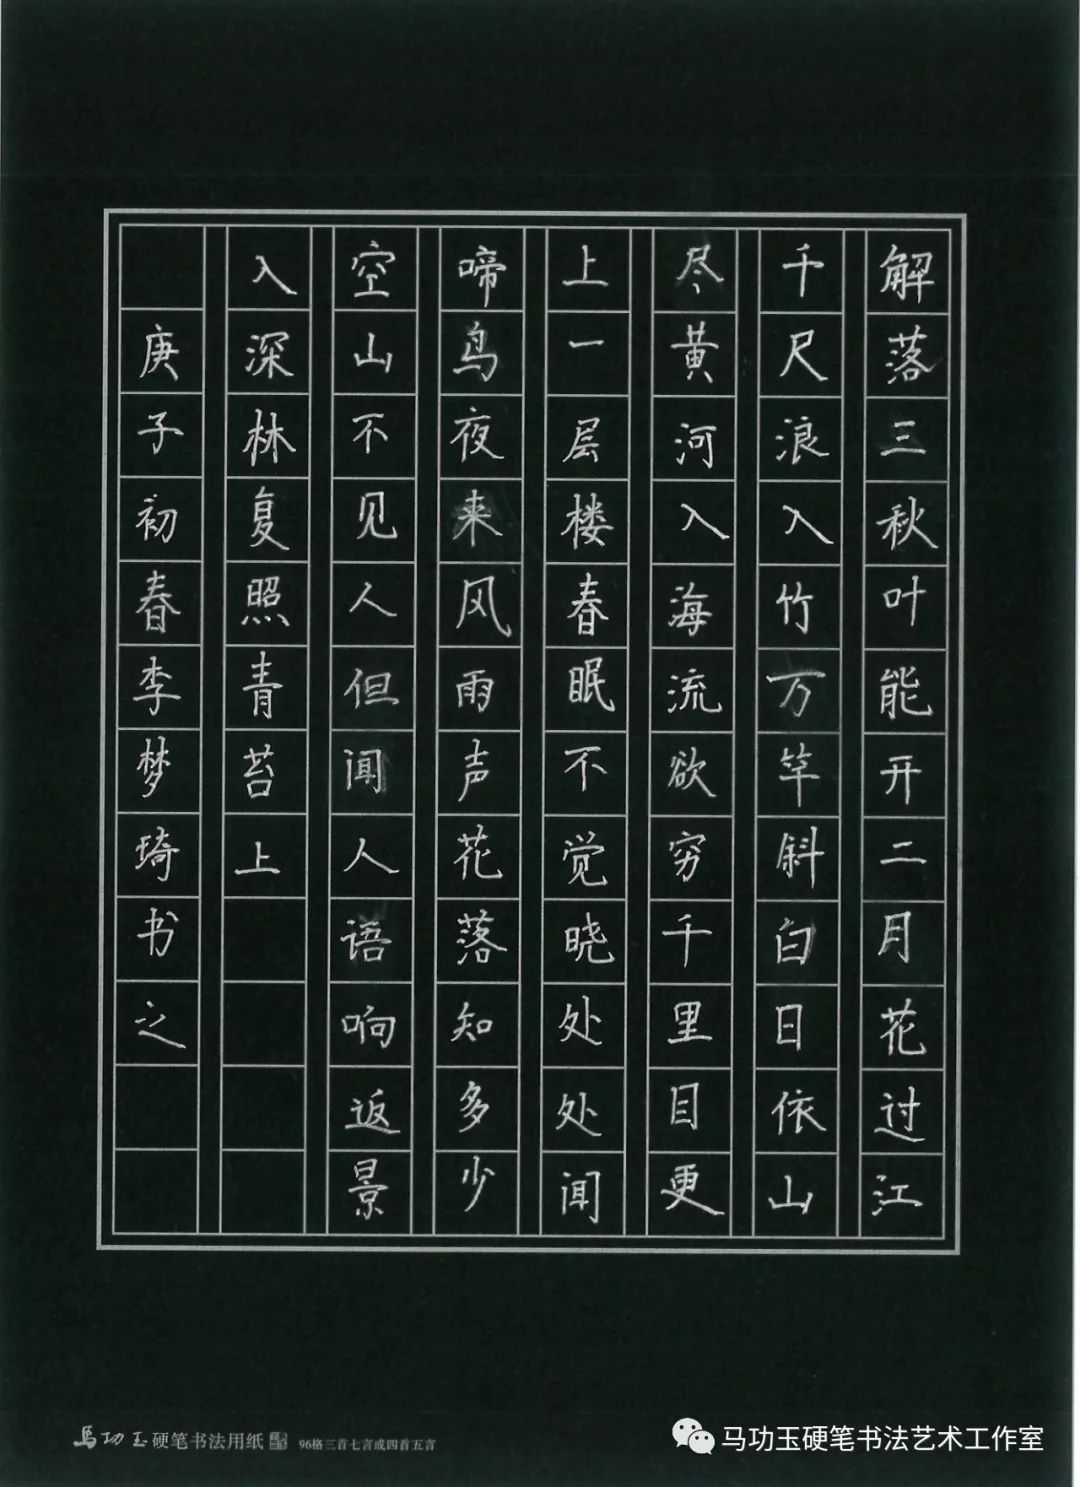 解落三秋叶能开二月花过江
千尺浪入竹万竿斜白日依山
尽黄河入海流欲穷千里目更
上一层楼春眠不觉晓处处闻
啼鸟夜来风雨声花落知多少
空山不见人但闻人语响返景
入深林复照青苔上
庚子初春李梦琦书之
马功玉硬笔书法用纸 96格三首七言或四首五言
马功玉硬笔书法艺术工作室